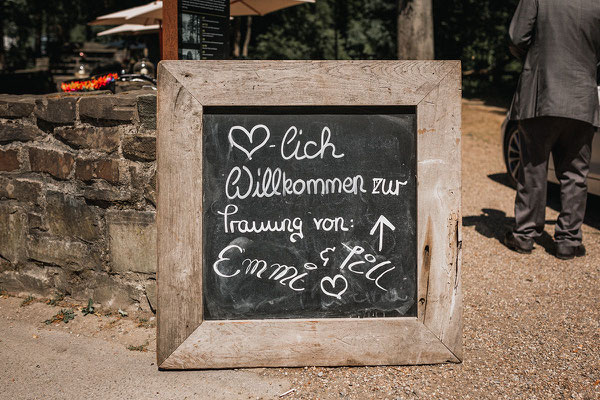 ♡-lich
Willkommen zur
Trauung von: ↑
Emmi & Till ♡